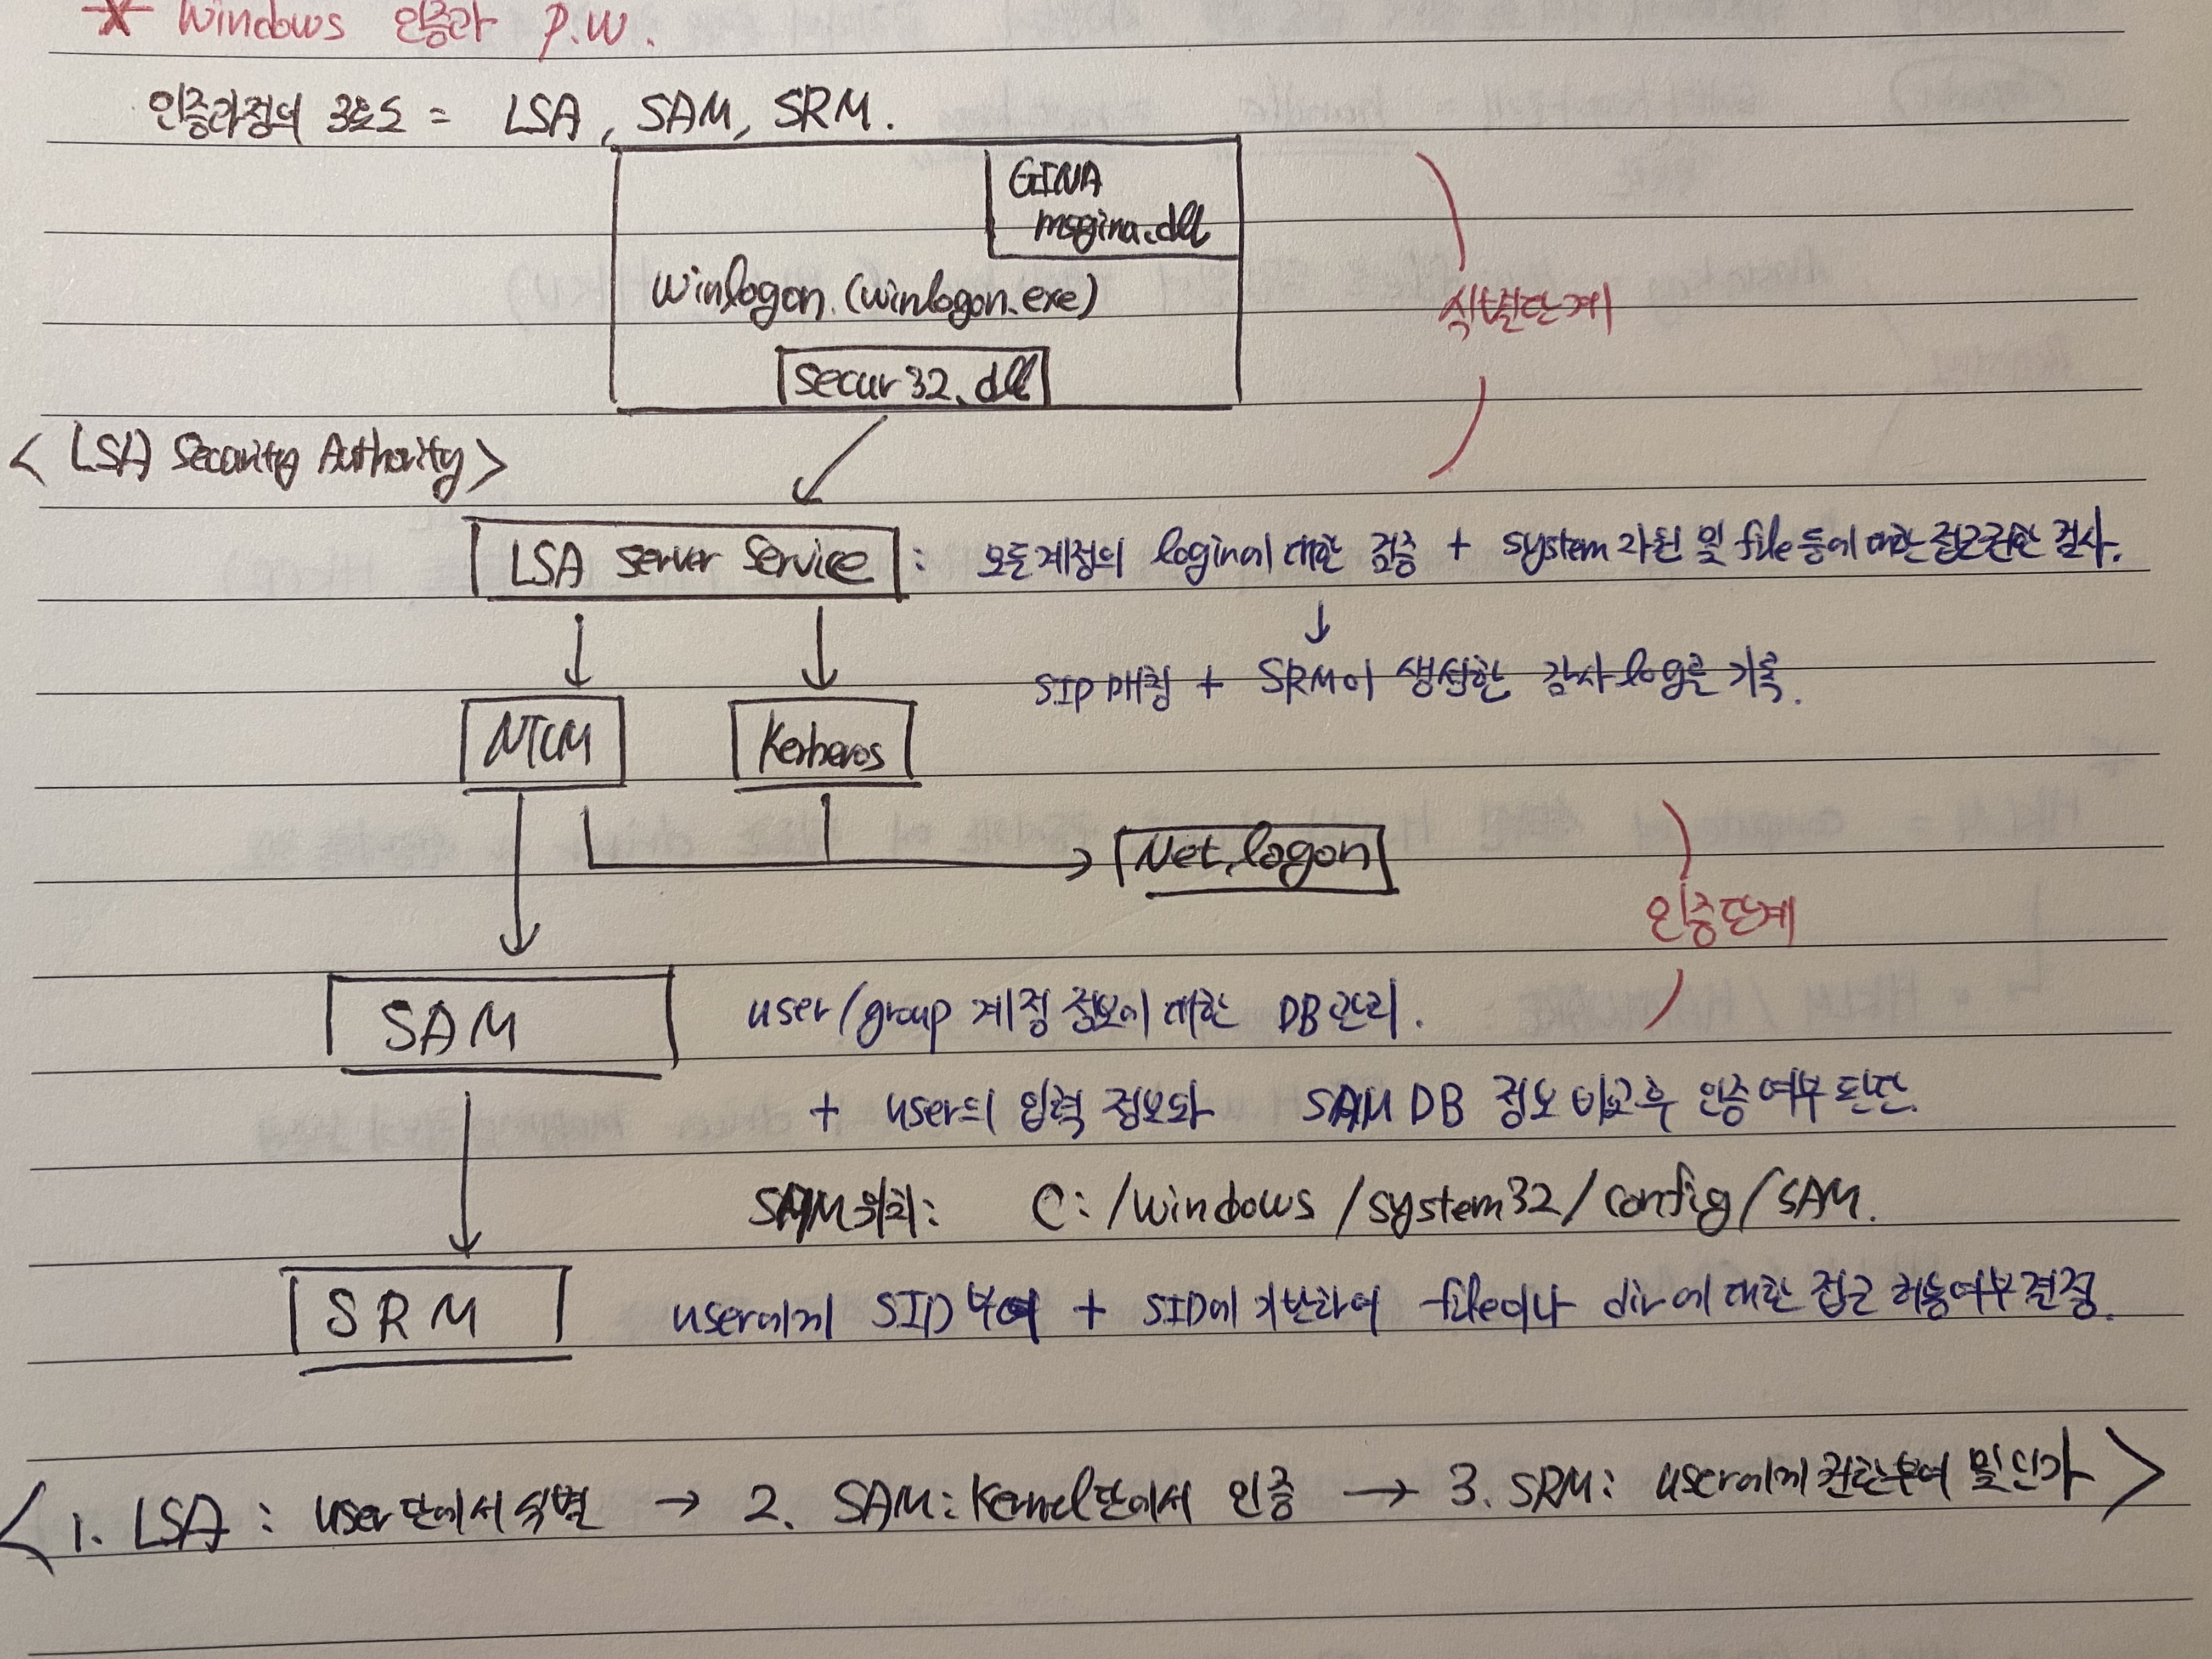 * Windows 인증과 P.W.
인증과정의 3요소 = LSA, SAM, SRM.
GINA
msgina.dll
Winlogon. (winlogon.exe)
secur32.dll
식별단계
< LSA Security Authority>
LSA Server Service : 모든계정의 login에 대한 검증 + system 자원 및 file 등에 대한 접근권한 검사.
↓
SID 매칭 + SRM이 생성한 감사 log를 기록.
NTLM Kerberos
Net.logon
인증단계
SAM user/group 계정 정보에 대한 DB관리.
+ user의 입력 정보와 SAM DB 정보 비교후 인증 여부 판단.
SAM위치: C:/windows/system32/config/SAM.
SRM user에게 SID 부여 + SID에 기반하여 file이나 dir에 대한 접근 허용여부결정.
< 1. LSA : user단에서 식별 → 2. SAM : Kernel단에서 인증 → 3. SRM : user에게 권한부여 및 인가 >